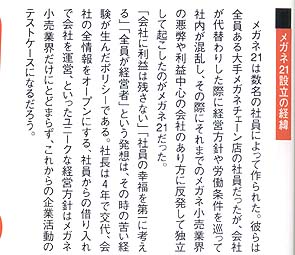 メガネ21設立の経緯
メガネ21は数名の社員によって作られた。彼らは
全員ある大手メガネチェーン店の社員だったが、会社
が代替わりした際に経営方針や労働条件を巡って
社内が混乱し、その際にそれまでのメガネ小売業界
の悪弊や利益中心の会社のあり方に反発して独立
して起こしたのがメガネ21だった。
「会社に利益は残さない」「社員の幸福を第一に考え
る」「全員が経営者」という発想は、その時の苦い経
験が生んだポリシーである。社長は4年で交代、会
社の全情報をオープンにする、社員からの借り入れ
で会社を運営、といったユニークな経営方針はメガネ
小売業界だけにとどまらず、これからの企業活動の
テストケースになるだろう。